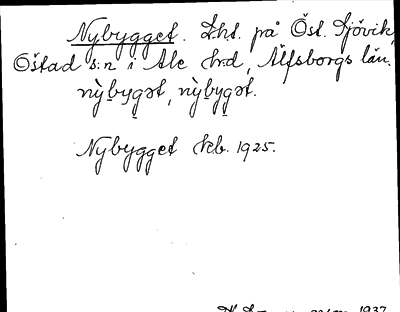 Nybygget. Lht. på Öst. Sjövik,
Östad s:n i Ale hd, Älfsborgs län.
nỳbygət, nỳbygət.
Nybygget kb. 1925.
1937